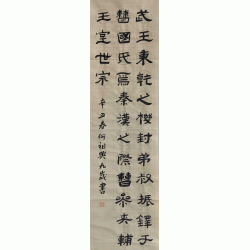 武王秉乾之機封弟叔振鐸于
曹國氏焉秦漢之際曹參夾輔
王室世宗
辛丑春何祖興九歲書